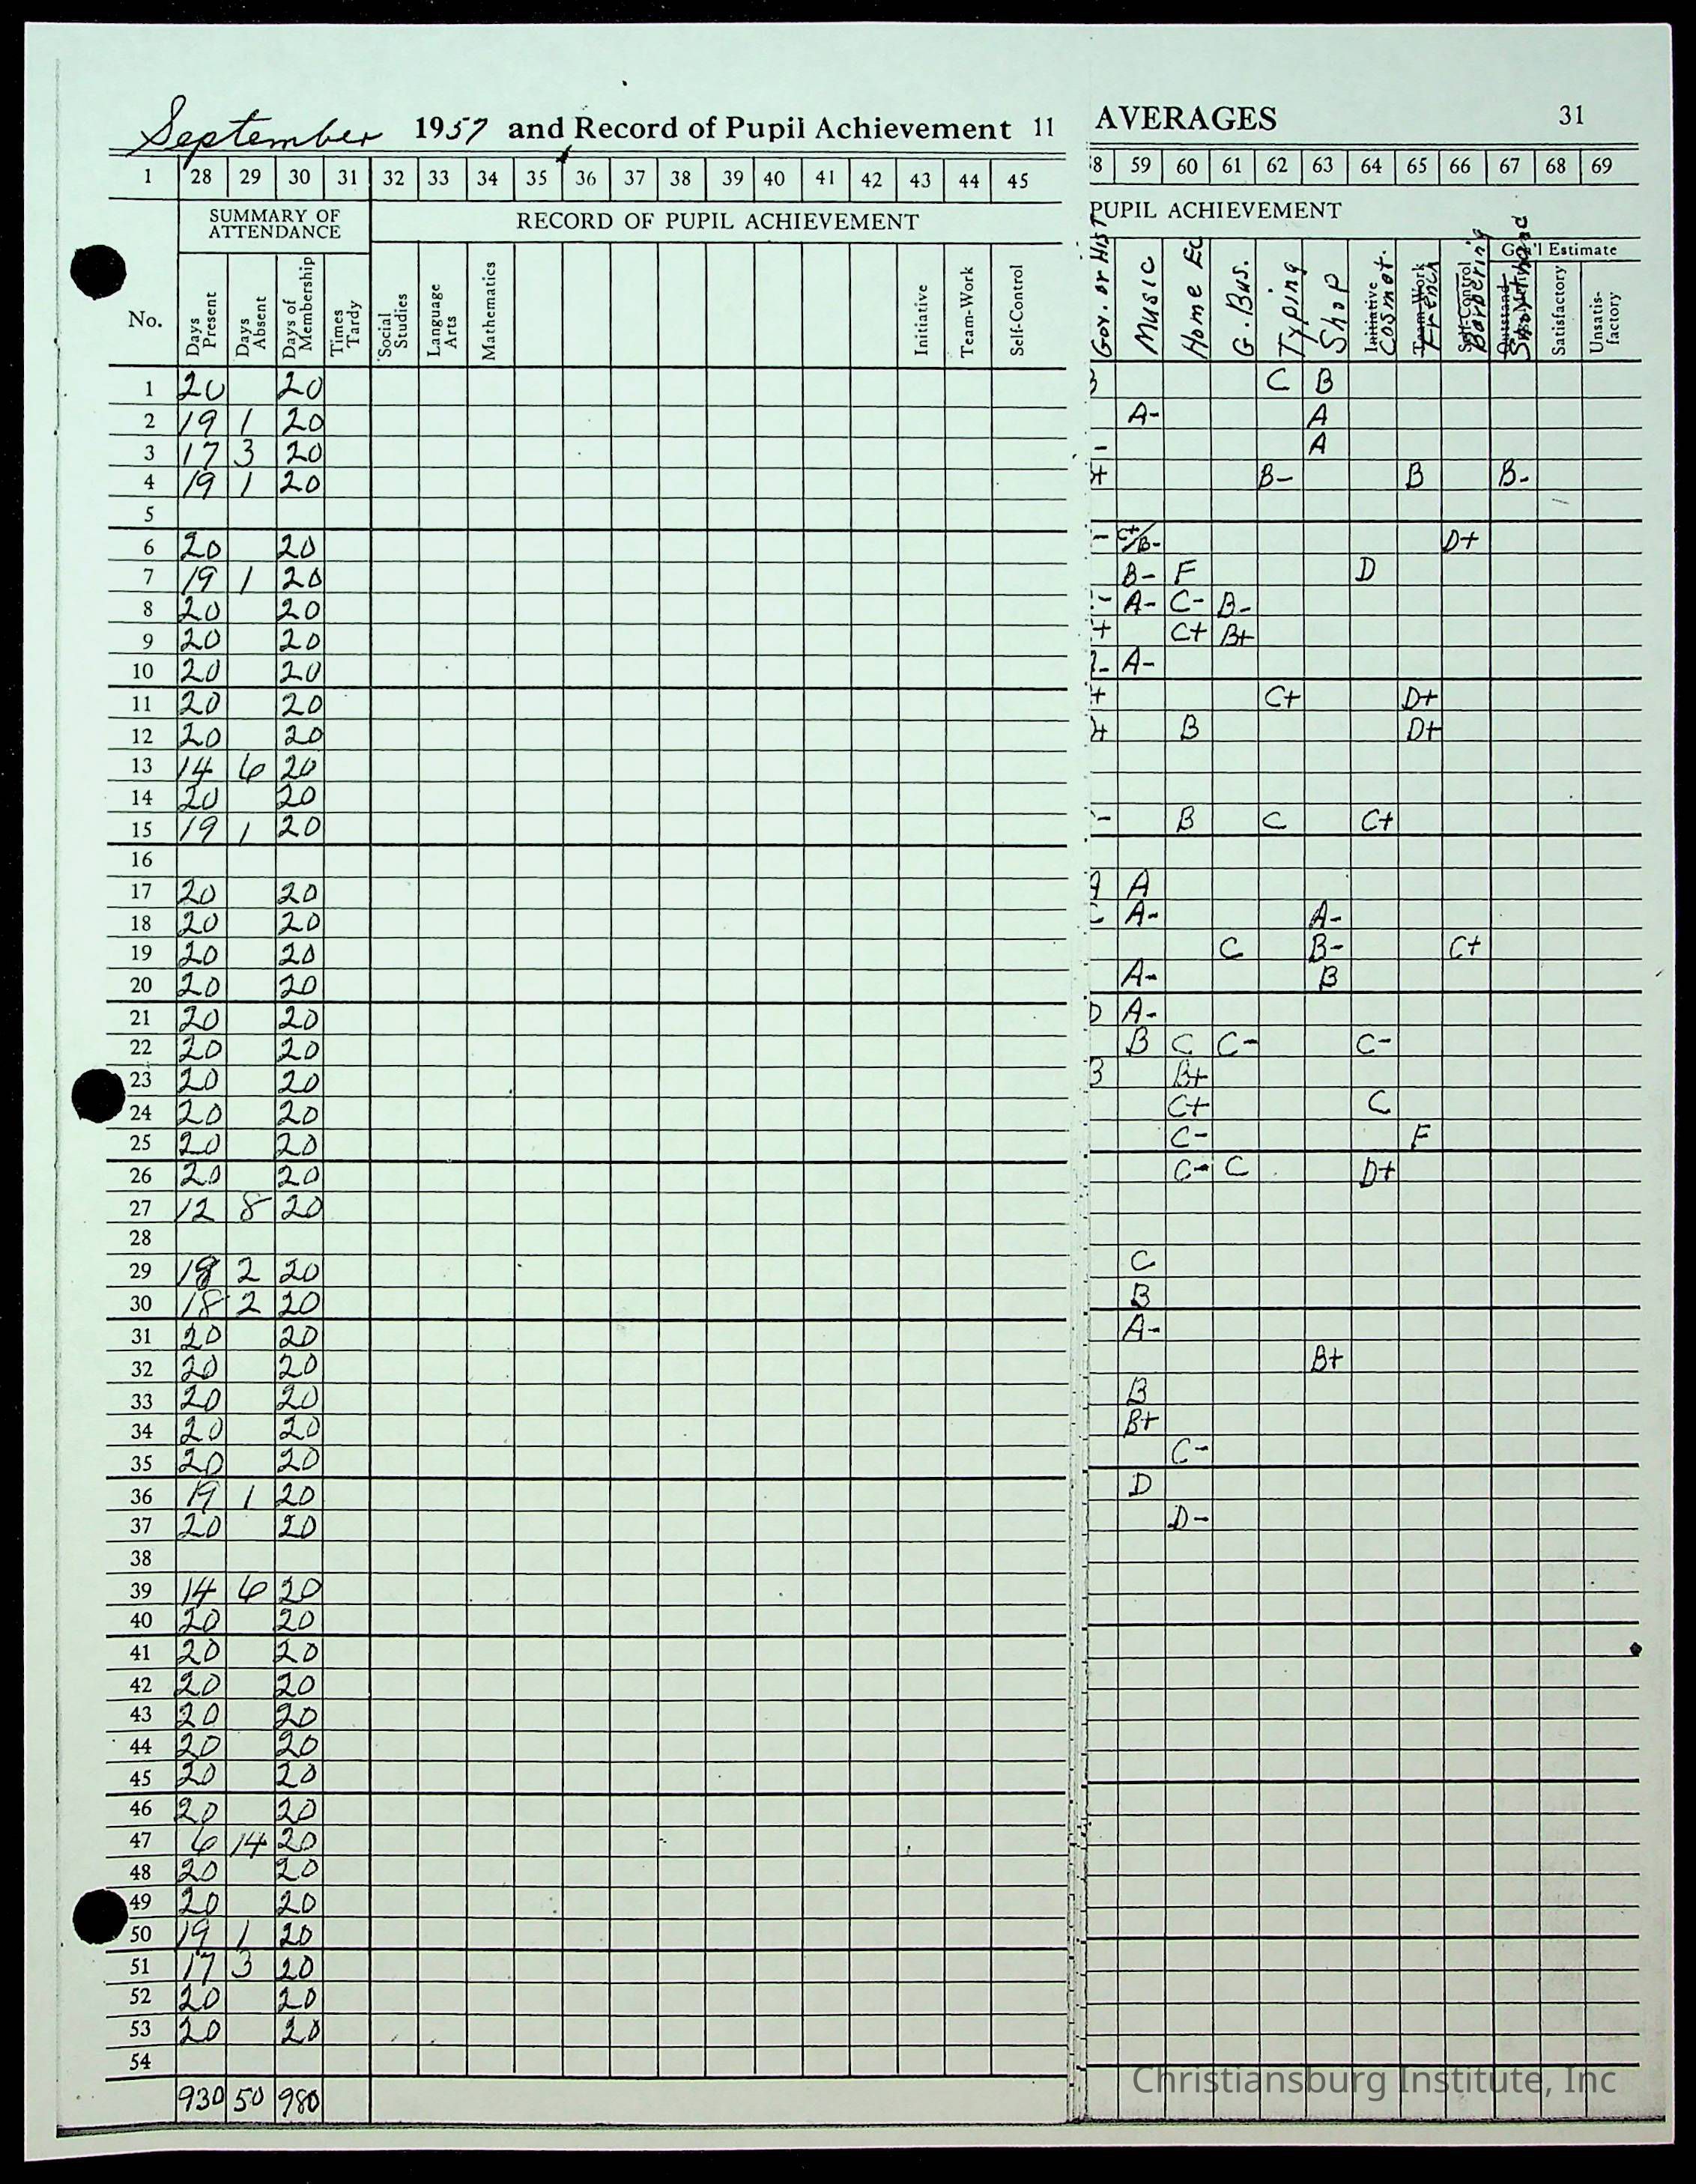 September 1957 and Record of Pupil Achievement 11
AVERAGES 31
1 28 29 30 31 32 33 34 35 36 37 38 39 40 41 42 43 44 45
8 59 60 61 62 63 64 65 66 67 68 69
SUMMARY OF ATTENDANCE RECORD OF PUPIL ACHIEVEMENT
PUPIL ACHIEVEMENT
Gen'l Estimate
No. Days Present Days Absent Days of Membership Times Tardy Social Studies Language Arts Mathematics Initiative Team-Work Self-Control
Gov. or Hist Music Home Ec G. Bus. Typing Shop Initiative Cosmot. Team-Work French Self-Control Barbering Shorthand Satisfactory Unsatis-factory
1 20 20 C B
2 19 1 20 A- A
3 17 3 20 - A
4 19 1 20 + B- B B-
5
6 20 20 - C+/B- D+
7 19 1 20 B- F D
8 20 20 - A- C- B-
9 20 20 + C+ B+
10 20 20 - A-
11 20 20 + C+ D+
12 20 20 + B D+
13 14 6 20
14 20 20
15 19 1 20 - B C C+
16
17 20 20 A
18 20 20 A- A-
19 20 20 C B- C+
20 20 20 A- B
21 20 20 D A-
22 20 20 B C C- C-
23 20 20 B B+
24 20 20 C+ C
25 20 20 C- F
26 20 20 C- C D+
27 12 8 20
28
29 18 2 20 C
30 18 2 20 B
31 20 20 A-
32 20 20 B+
33 20 20 B
34 20 20 B+
35 20 20 C-
36 19 1 20 D
37 20 20 D-
38
39 14 6 20
40 20 20
41 20 20
42 20 20
43 20 20
44 20 20
45 20 20
46 20 20
47 6 14 20
48 20 20
49 20 20
50 19 1 20
51 17 3 20
52 20 20
53 20 20
54
930 50 980
Christiansburg Institute, Inc